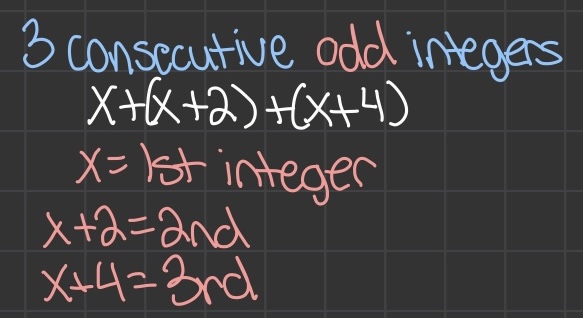 3 consecutive odd integers
x+(x+2)+(x+4)
x=1st integer
x+2=2nd
x+4=3rd